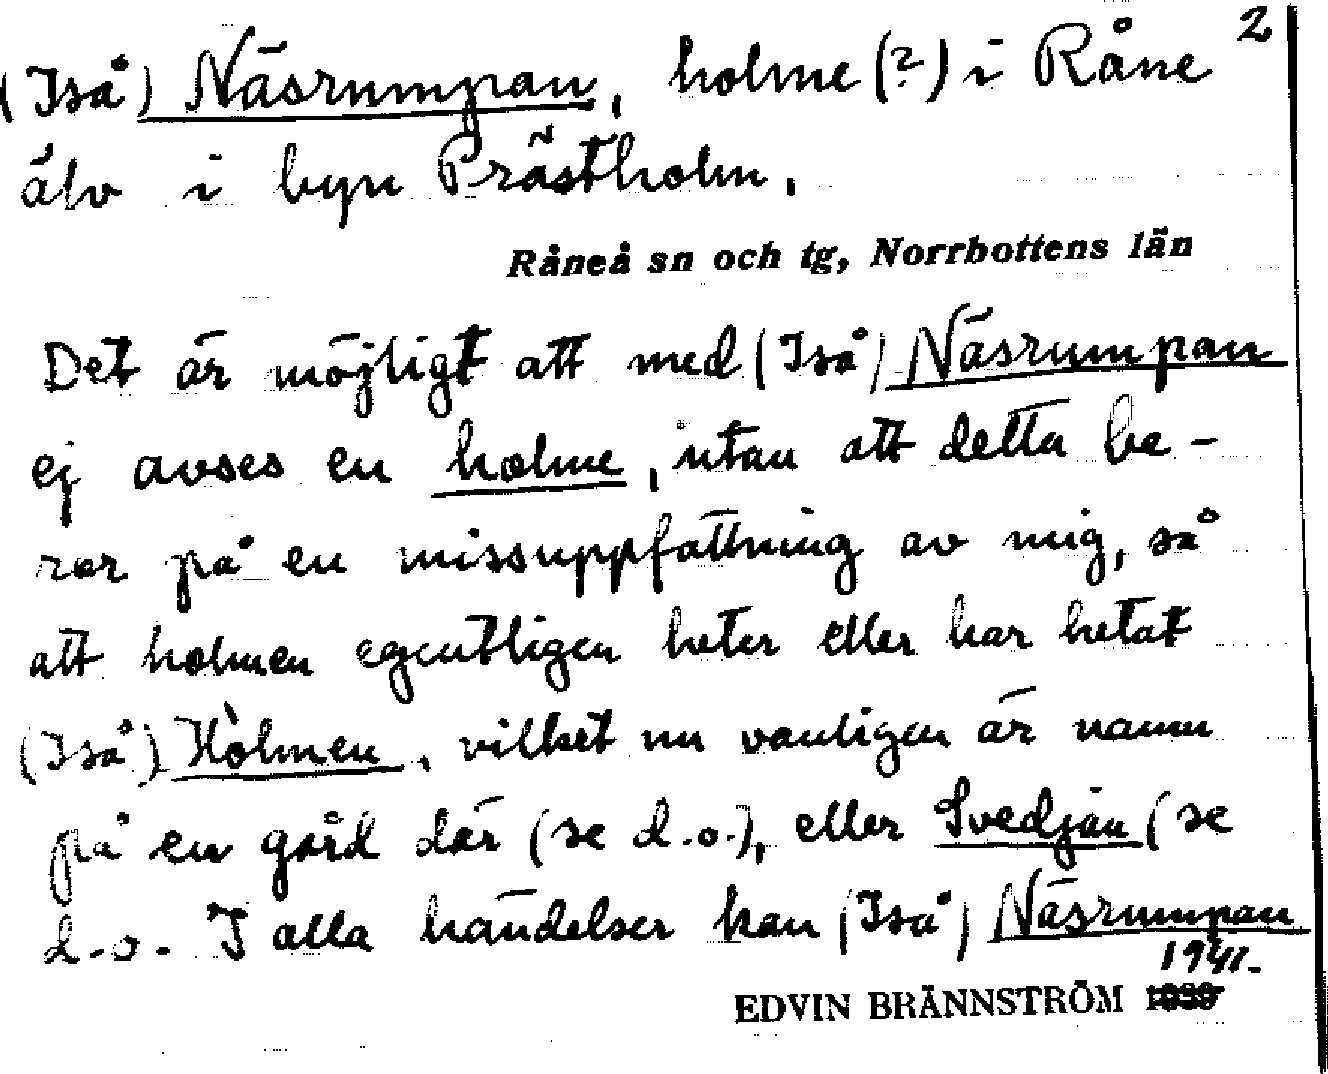 2
(Iså) Näsrumpan, holme (?) i Råne
älv i byn Prästholm.
Råneå sn och tg, Norrbottens län
Det är möjligt att med (Iså) Näsrumpan
ej avses en holme, utan att detta be-
ror på en missuppfattning av mig, så
att holmen egentligen heter eller har hetat
(Iså) Hòlmen, vilket nu vanligen är namn
på en gård där (se d.o.), eller Svedjan (se
d.o. I alla händelser kan (Iså) Näsrumpan
1941.
EDVIN BRÄNNSTRÖM 1939